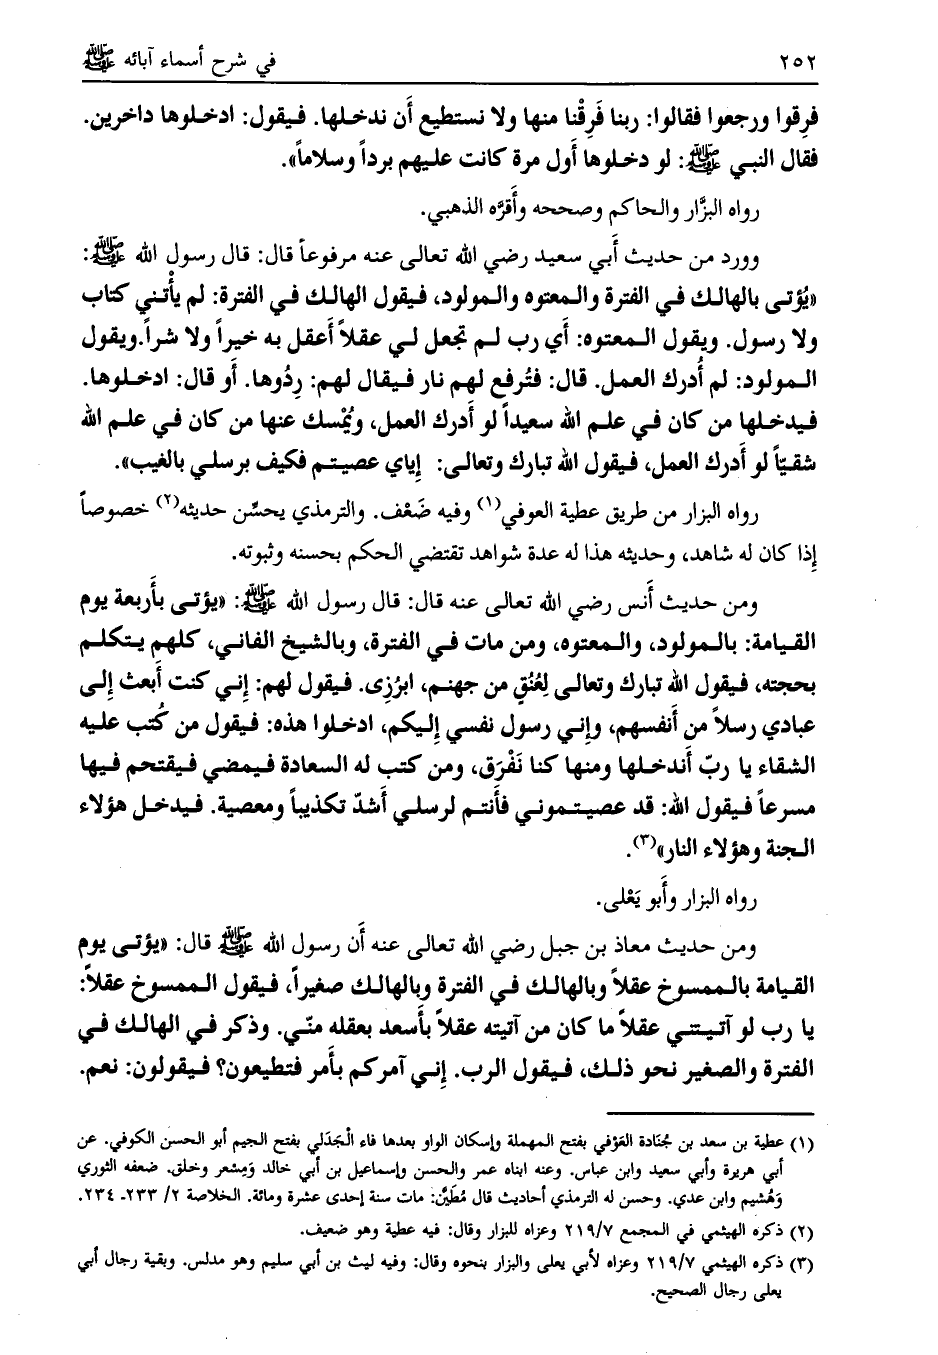 ٢٥٢ في شرح أسماء آبائه ﷺ
فرِقوا ورجعوا فقالوا: ربنا فَرِقْنا منها ولا نستطيع أَن ندخلها. فيقول: ادخلوها داخرين.
فقال النبي ﷺ: لو دخلوها أَول مرة كانت عليهم برداً وسلاماً».
رواه البزَّار والحاكم وصححه وأَقرَّه الذهبي.
وورد من حديث أَبي سعيد رضي الله تعالى عنه مرفوعاً قال: قال رسول الله ﷺ:
«يُؤتى بالهالك في الفترة والمعتوه والمولود، فيقول الهالك في الفترة: لم يأْتني كتاب
ولا رسول. ويقول المعتوه: أَي رب لم تجعل لي عقلاً أَعقل به خيراً ولا شراً.ويقول
المولود: لم أُدرك العمل. قال: فتُرفع لهم نار فيقال لهم: رِدُوها. أَو قال: ادخلوها.
فيدخلها من كان في علم الله سعيداً لو أَدرك العمل، ويُمْسك عنها من كان في علم الله
شقيّاً لو أَدرك العمل، فيقول الله تبارك وتعالى: إِياي عصيتم فكيف برسلي بالغيب».
رواه البزار من طريق عطية العوفي(١) وفيه ضَعْف. والترمذي يحسِّن حديثه(٢) خصوصاً
إِذا كان له شاهد، وحديثه هذا له عدة شواهد تقتضي الحكم بحسنه وثبوته.
ومن حديث أَنس رضي الله تعالى عنه قال: قال رسول الله ﷺ: «يؤتى بأَربعة يوم
القيامة: بالمولود، والمعتوه، ومن مات في الفترة، وبالشيخ الفاني، كلهم يتكلم
بحجته، فيقول الله تبارك وتعالى لِعُنُقٍ من جهنم، ابرُزِى. فيقول لهم: إِني كنت أَبعث إِلى
عبادي رسلاً من أَنفسهم، وإِني رسول نفسي إِليكم، ادخلوا هذه: فيقول من كُتب عليه
الشقاء يا ربّ أَندخلها ومنها كنا نَفْرَق، ومن كتب له السعادة فيمضي فيقتحم فيها
مسرعاً فيقول الله: قد عصيتموني فأَنتم لرسلي أَشدّ تكذيباً ومعصية. فيدخل هؤلاء
الجنة وهؤلاء النار»(٣).
رواه البزار وأَبو يَعْلى.
ومن حديث معاذ بن جبل رضي الله تعالى عنه أَن رسول الله ﷺ قال: «يؤتى يوم
القيامة بالممسوخ عقلاً وبالهالك في الفترة وبالهالك صغيراً، فيقول الممسوخ عقلاً:
يا رب لو آتيتني عقلاً ما كان من آتيته عقلاً بأَسعد بعقله منّي. وذكر في الهالك في
الفترة والصغير نحو ذلك، فيقول الرب. إِني آمركم بأَمر فتطيعون؟ فيقولون: نعم.
(١) عطية بن سعد بن جُنَادة العَوْفي بفتح المهملة وإسكان الواو بعدها فاء الْجَدَلي بفتح الجيم أبو الحسن الكوفي. عن
أبي هريرة وأبي سعيد وابن عباس. وعنه ابناه عمر والحسن وإسماعيل بن أبي خالد وَمِسْعر وخلق. ضعفه الثوري
وَهُشيم وابن عدي. وحسن له الترمذي أحاديث قال مُطَيَّن: مات سنة إحدى عشرة ومائة. الخلاصة ٢/ ٢٣٣- ٢٣٤.
(٢) ذكره الهيثمي في المجمع ٢١٩/٧ وعزاه للبزار وقال: فيه عطية وهو ضعيف.
(٣) ذكره الهيثمي ٢١٩/٧ وعزاه لأبي يعلى والبزار بنحوه وقال: وفيه ليث بن أبي سليم وهو مدلس. وبقية رجال أبي
يعلى رجال الصحيح.